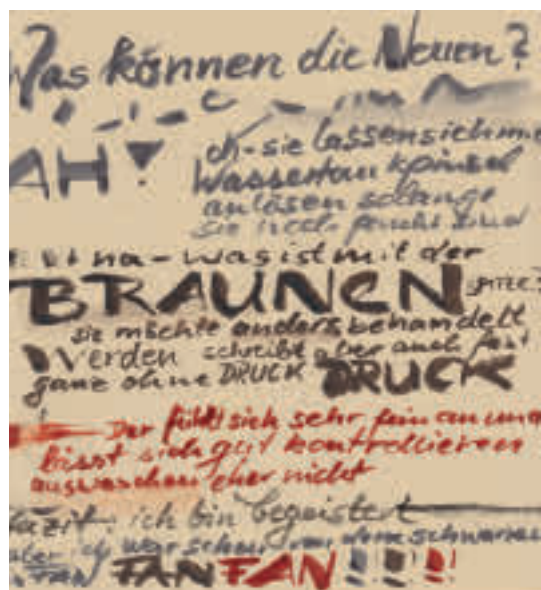 Was können die Neuen?
AH! och - sie lassen sich m
Wassertankpinsel
anlösen solange
sie noch feucht sind
na - was ist mit der
BRAUNEN SPITZE?
sie möchte anders behandelt
werden schreibt aber auch fast
ganz ohne DRUCK DRUCK
Der fühlt sich sehr fein an und
lässt sich gut kontrollieren
auswaschen eher nicht
Fazit: ich bin begeistert
aber ich war schon von dem schwarzen
FAN FAN FAN!!!!